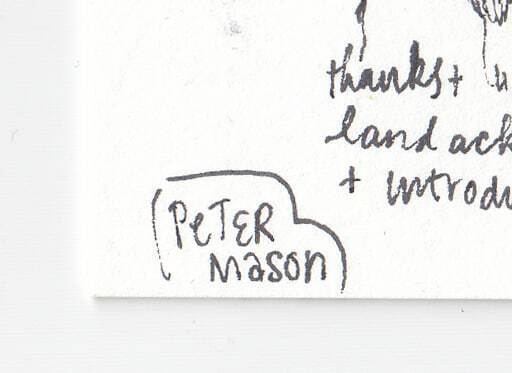 thanks +
land ack
+ introdu
PeTER
mason